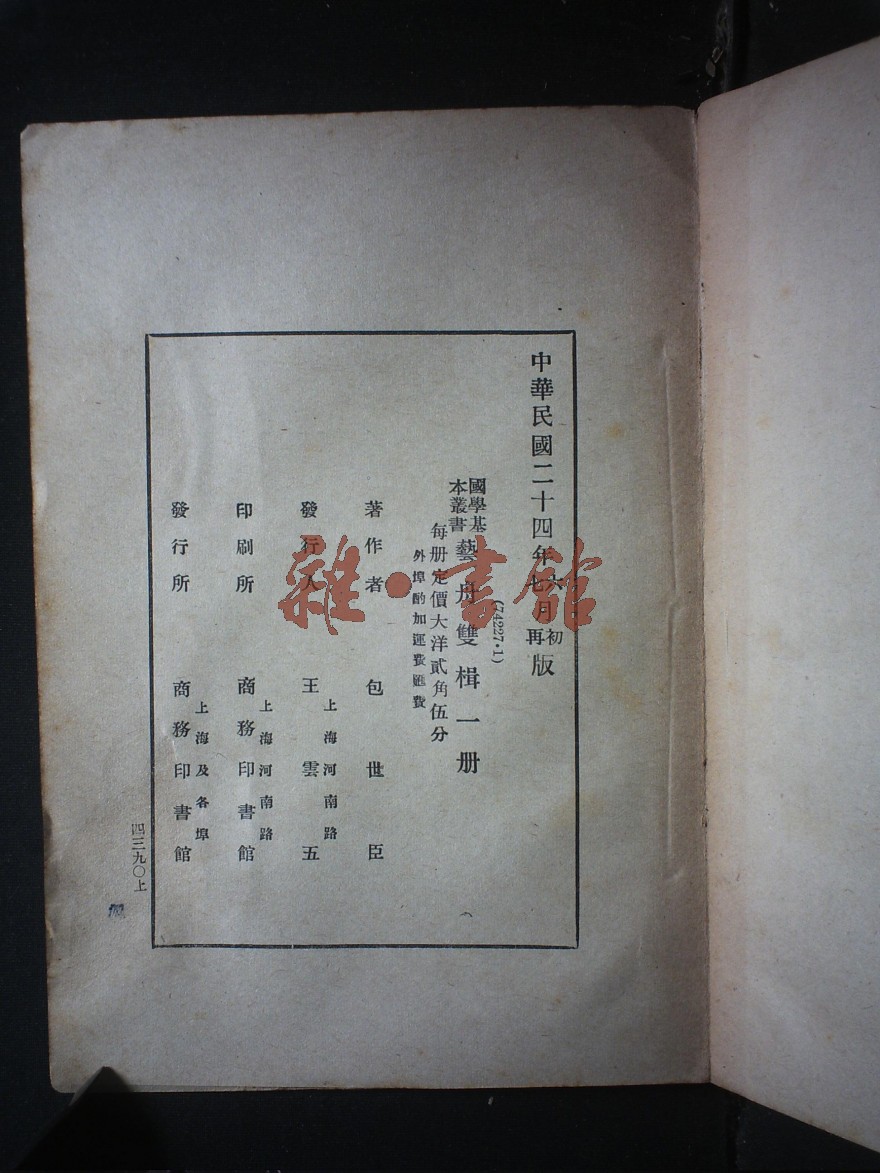 中華民國二十四年六月初版
七月再版
(74227·1)
國學基本叢書 藝舟雙楫一册
每册定價大洋貳角伍分
外埠酌加運費匯費
著作者 包世臣
發行人 王雲五
上海河南路
印刷所 商務印書館
上海河南路
發行所 商務印書館
上海及各埠
四三九〇上
雜·書館